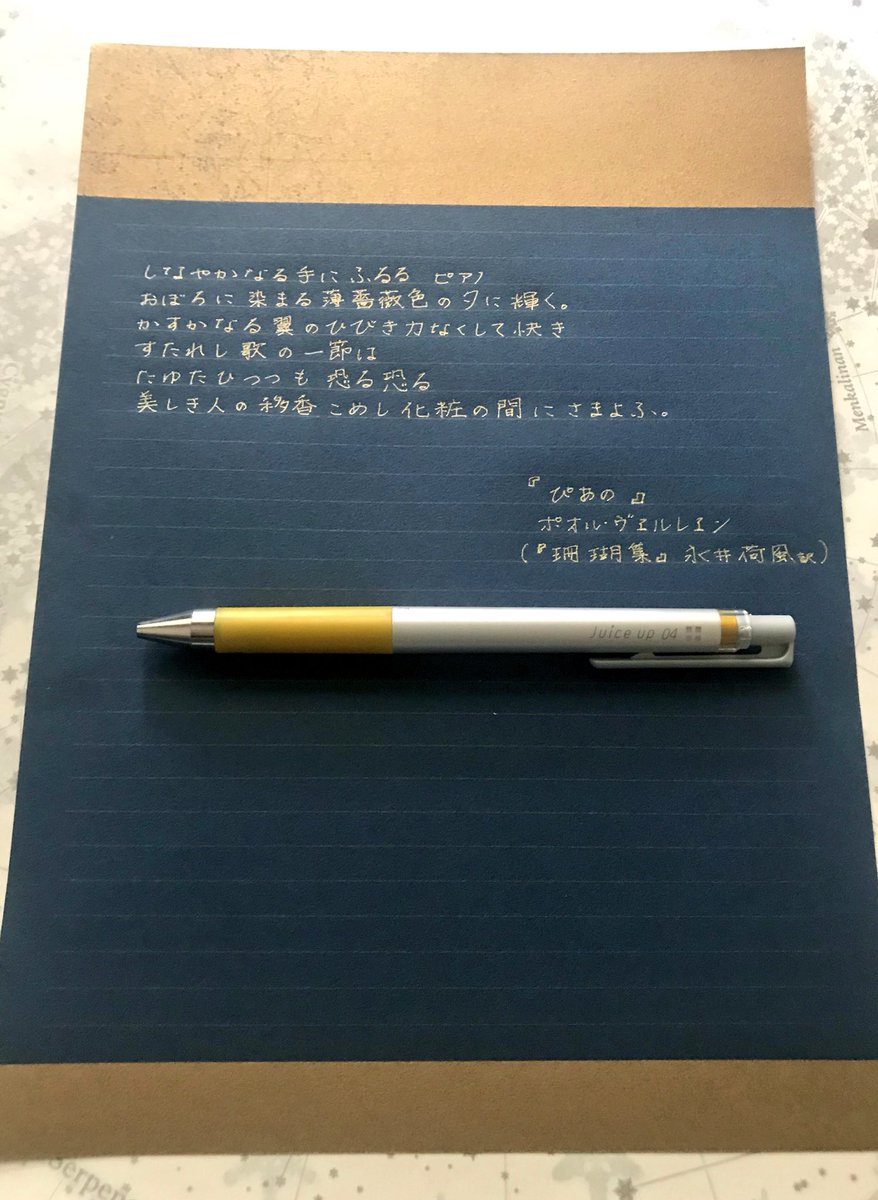 しなやかなる手にふるる ピアノ
おぼろに染まる薄薔薇色の夕に輝く。
かすかなる翼のひびき力なくして快き
すたれし歌の一節は
たゆたひつつも恐る恐る
美しき人の移香こめし化粧の間にさまよふ。
『ぴあの』
ポオル・ヴェルレエン
(『珊瑚集』永井荷風訳)
Juice up 04
Menkalinan